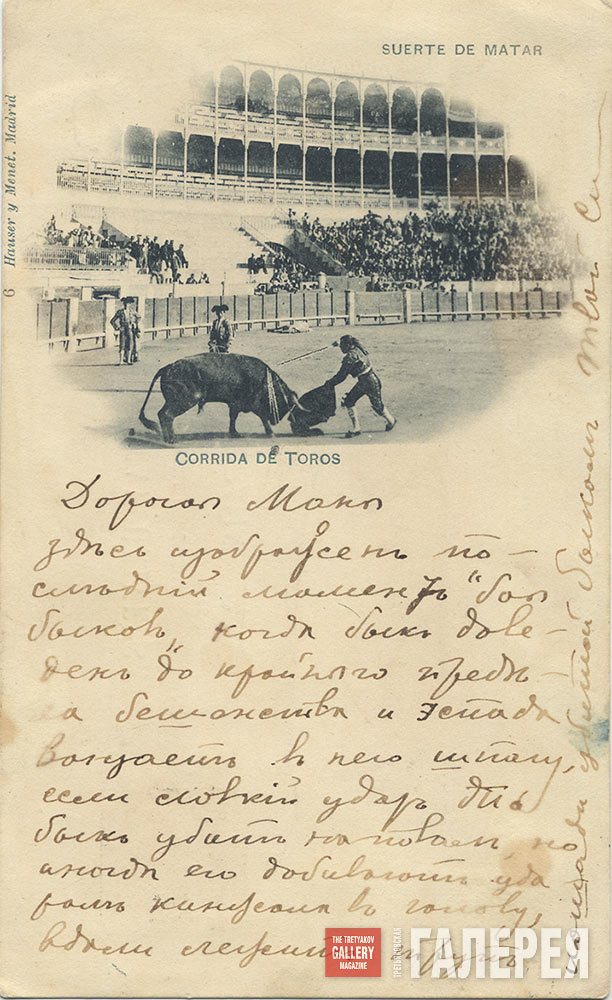 SUERTE DE MATAR
6 Hauser y Menet. Madrid
CORRIDA DE TOROS
Дорогая Маня
здѣсь изображенъ по-
слѣднiй моментъ "боя
быковъ", когда быкъ дове-
денъ до крайняго предѣ-
ла бешенства и Эспада
вонзаетъ въ него шпагу,
если ловкiй ударъ то
быкъ убитъ наповал, но
иногда его добиваютъ уда
ромъ кинжала въ голову,
вдали лежитъ трупъ
лошади убитой быкомъ твой
THE TRETYAKOV
GALLERY
MAGAZINE
ТРЕТЬЯКОВСКАЯ
ГАЛЕРЕЯ